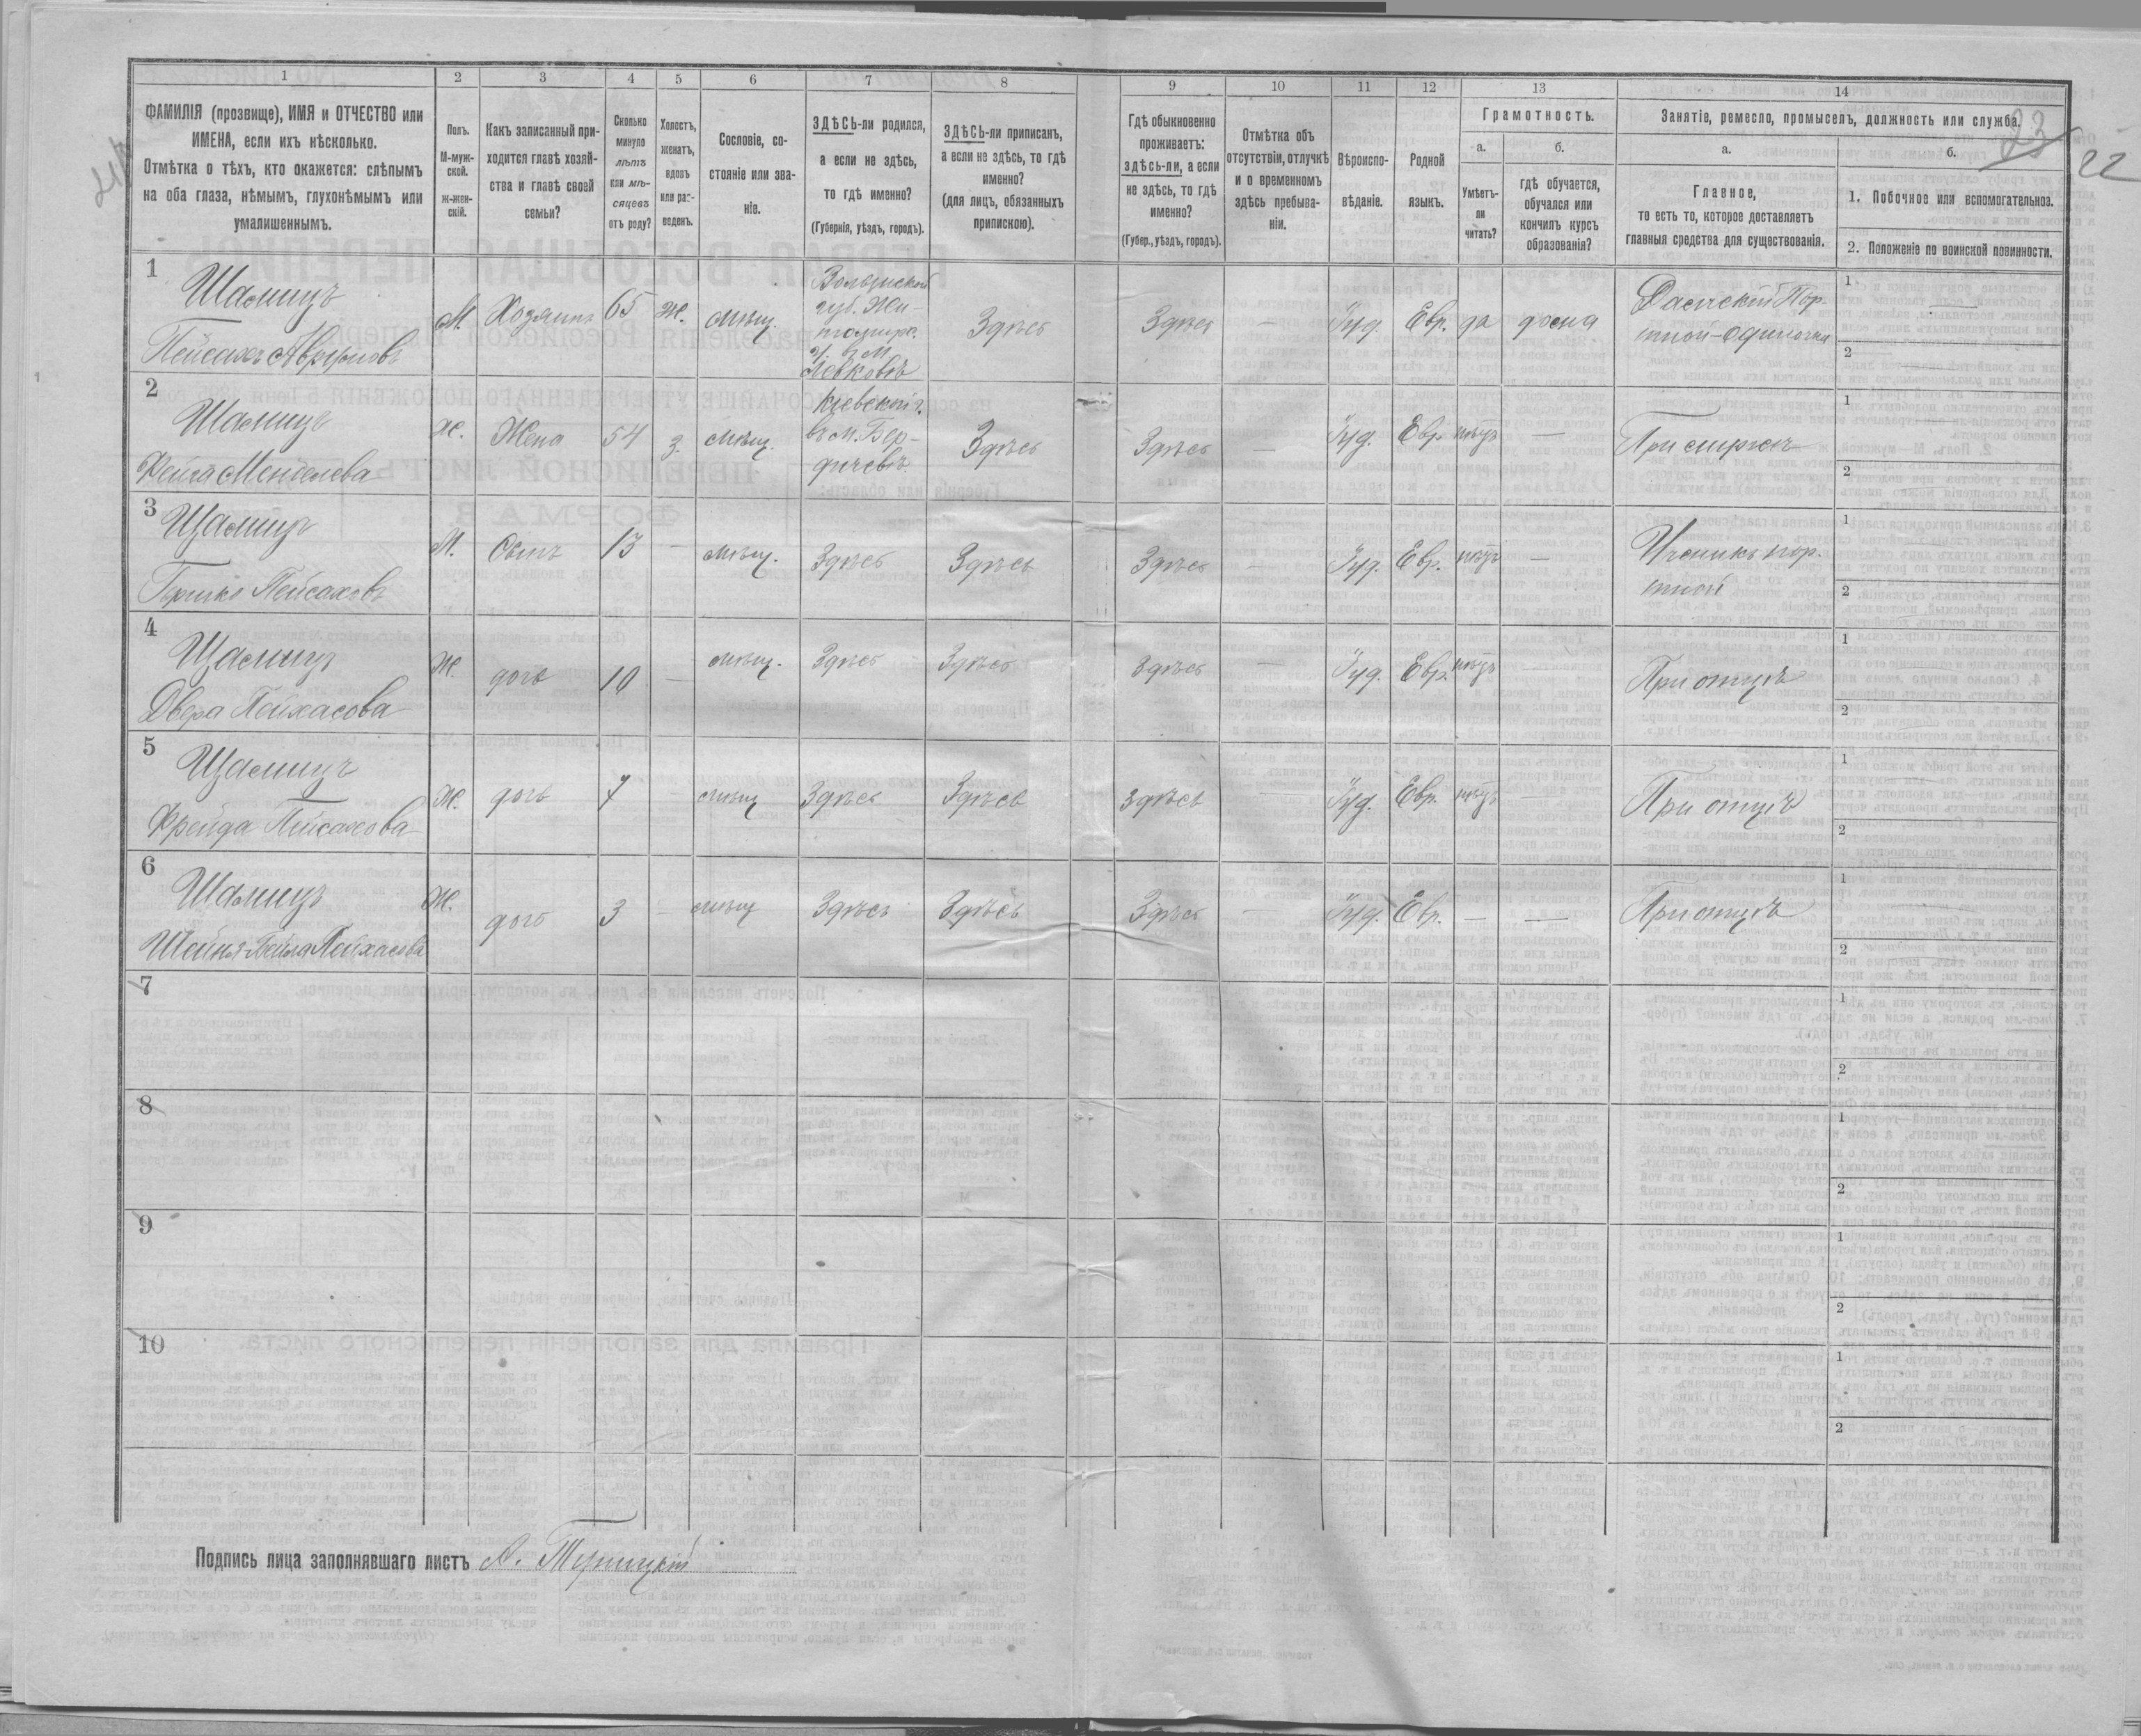 23
22
1
2
3
4
5
6
7
8
9
10
11
12
13
14
ФАМИЛІЯ (прозвище), ИМЯ и ОТЧЕСТВО или
ИМЕНА, если ихъ нѣсколько.
Отмѣтка о тѣхъ, кто окажется: слѣпымъ
на оба глаза, нѣмымъ, глухонѣмымъ или
умалишеннымъ.
Полъ.
М-муж-
ской.
ж-жен-
скій.
Какъ записанный при-
ходится главѣ хозяй-
ства и главѣ своей
семьи?
Сколько
минуло
лѣтъ
или мѣ-
сяцевъ
отъ роду?
Холостъ,
женатъ,
вдовъ
или раз-
веденъ.
Сословіе, со-
стояніе или зва-
ніе.
ЗДѢСЬ-ли родился,
а если не здѣсь,
то гдѣ именно?
(Губернія, уѣздъ, городъ).
ЗДѢСЬ-ли приписанъ,
а если не здѣсь, то гдѣ
именно?
(для лицъ, обязанныхъ
припискою).
Гдѣ обыкновенно
проживаетъ:
здѣсь-ли, а если
не здѣсь, то гдѣ
именно?
(Губер., уѣздъ, городъ).
Отмѣтка объ
отсутствіи, отлучкѣ
и о временномъ
здѣсь пребыва-
ніи.
Вѣроиспо-
вѣданіе.
Родной
языкъ.
Грамотность.
а.
Умѣетъ-
ли
читать?
б.
гдѣ обучается,
обучался или
кончилъ курсъ
образованія?
Занятіе, ремесло, промыселъ, должность или служба.
а.
Главное,
то есть то, которое доставляетъ
главныя средства для существованія.
б.
1. Побочное или вспомогательное.
2. Положеніе по воинской повинности.
1
Шамицъ
Пейсахъ Аврумовъ
М. Хозяинъ 65 Ж. Мѣщ.
Волынской
губ. Жи-
томир.
у. в м.
Левковѣ
Здѣсь Здѣсь — Іуд. Евр. да дома
Дамскій Пор-
тной-одиночка
1 —
2
2
Шамицъ
Фейга Менделева
ж. Жена 54 З. Мѣщ.
Кіевской г.
въ м. Бер-
дичевѣ
Здѣсь Здѣсь — Іуд. Евр. нѣтъ —
При мужѣ
1
2
3
Шамицъ
Гершко Пейсаховъ
М. Сынъ 13 — Мѣщ. Здѣсь Здѣсь Здѣсь — Іуд. Евр. нѣтъ —
Ученикъ пор-
тной
1
2
4
Шамицъ
Двера Пейхасова
Ж. дочь 10 — Мѣщ. Здѣсь Здѣсь Здѣсь — Іуд. Евр. нѣтъ —
При отцѣ
1
2
5
Шамицъ
Фрейда Пейсахова
Ж. дочь 7 — Мѣщ Здѣсь Здѣсь Здѣсь — Іуд. Евр. нѣтъ
При отцѣ
1
2
6
Шамицъ
Шейня Бейла Пейхасова
Ж. дочь 3 — Мѣщ Здѣсь Здѣсь Здѣсь — Іуд. Евр. — —
При отцѣ
1
2
7
1
2
8
1
2
9
1
2
10
1
2
Подпись лица заполнявшаго листъ А.